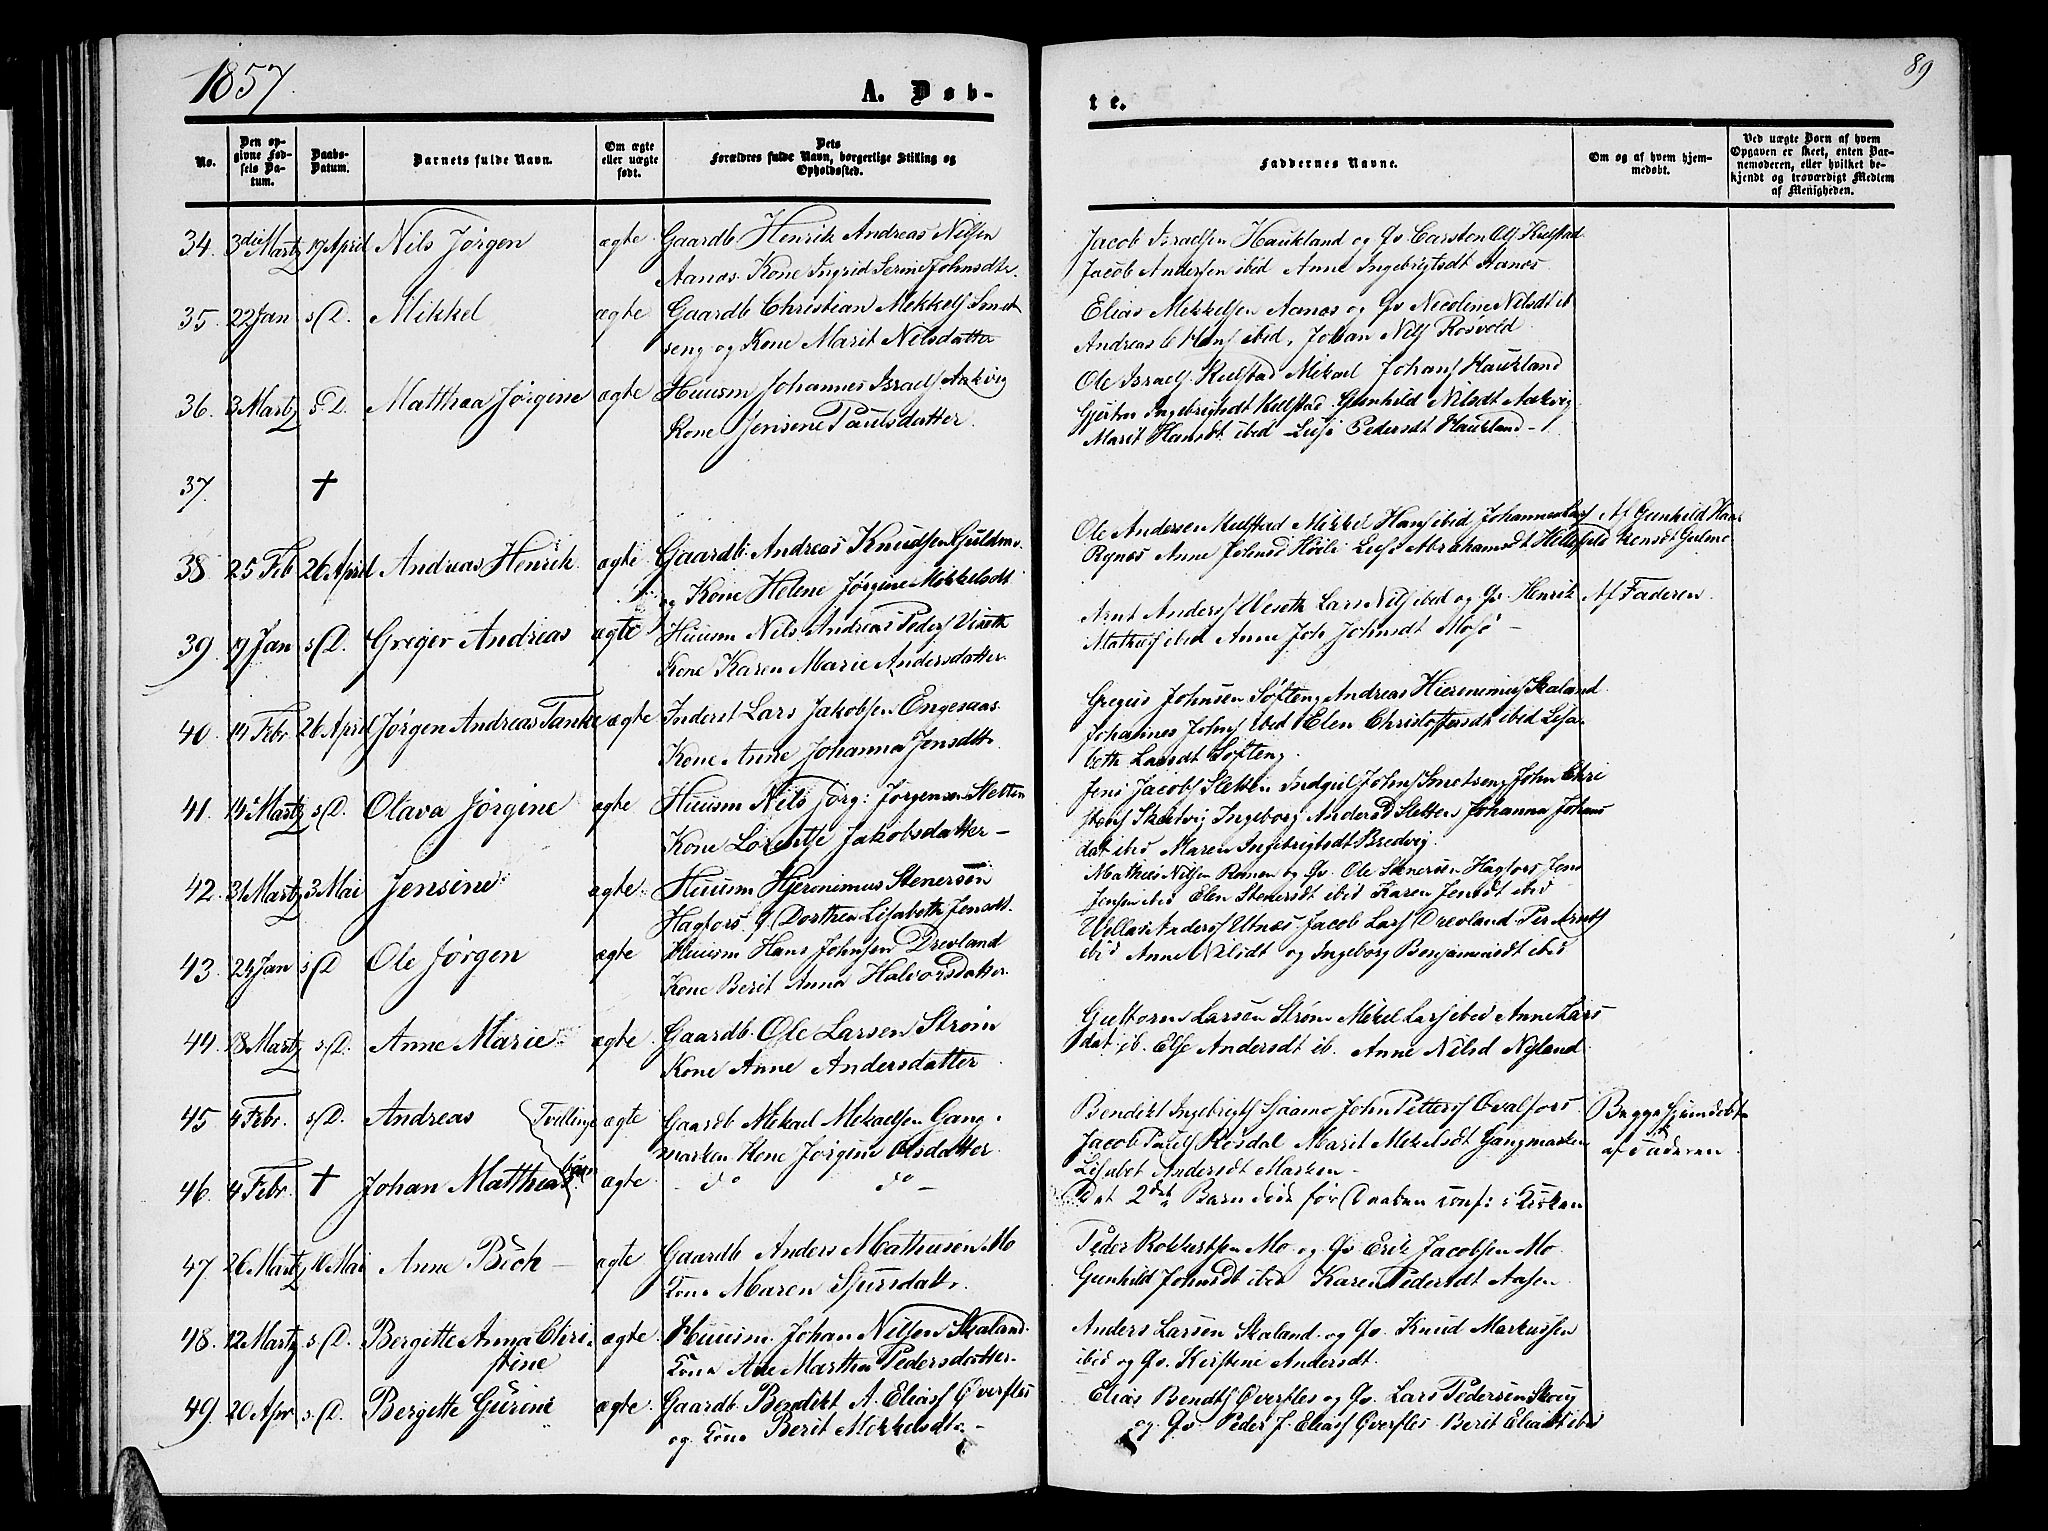 1857
89
A. Døb-
te.
No.
Den op-
givne Fød-
sels Da-
tum.
Daabs-
Datum.
Barnets fulde Navn.
Om ægte
eller uægte
født.
Dets
Forældres fulde Navn, borgerlige Stilling og
Opholdssted.
Faddernes Navne.
Om og af hvem hjem-
medøbt.
Ved uægte Børn af hvem
Opgaven er skeet, enten Bar-
nemoderen, eller hvilket be-
kjendt og troværdigt Medlem
af Menigheden.
34. 3die Martz 19 April Nils Jørgen ægte Gaardb. Henrik Andreas Nilsen
Aanæs Kone Ingrid Serine Johnsdtr.
Jacob Israelsen Haukland og Gv. Carsten Ols Kulstad
Jacob Andersen ibid Anne Ingebrigtsdt Aanes
35. 22 Jan s/D. Mikkel ægte Gaardb Christian Mekkels Smet
seng og Kone Marit Nilsdatter
Elias Mekkelsen Aanæs og Gv Nicoline Nilsdt ib
Andreas Hans ibid, Johan Nils Rosvold
36. 3 Martz s.D. Matthea Jørgine ægte Huusm Johannes Israels Aakvig
Kone Jensine Paulsdatter
Ole Israels Kulstad Mikael Johans Haukland
Ingebrigtsdt Kulstad Gunhild Nilsdt Aakvig
Marit Hansdt ibid Lisi Pedersdt Haukland
37. †
38. 25 Feb 26 April Andreas Henrik ægte Gaardb. Andreas Knudsen
og Kone Helene Jørgine Mikkelsdt
Ole Andersen Kulstad Mikkel Hans ibid Johannes Lars
Rynes Anne Johnsd Lisi Abrahamsdt
Af Gunhild Haa-
kensdt
39. 19 Jan s/D. Greger Andreas ægte Huusm Nils Andreas Peders
Kone Karen Marie Andersdatter
Arnt Anders Lars Nils ibid og Gv. Henrik
Mathias ibid Anne Joh Johnsdt
Af Faderen.
40. 14 Febr 26 April Jørgen Andreas Tanke ægte Inderst Lars Jakobsen Engesaas
Kone Anne Johanna Jensdtr
Gregus Johnsen Søfteng Andreas Hieronimus Skaland
Johannes Johns ibid Elen Christoffersdt ibid Lisa-
beth Larsdt Søfteng.
41. 14 Martz s/D. Olava Jørgine ægte Huusm Nils Jørg: Jørgensen Sletten
Kone Lorentse Jakobsdatter
Jens Jacobs Sletten Johns Smetseng John Chri
Ingeborg Andersd Sletten Johanna Johans
dat ibid Maren Ingebrigtsdt Bredvig
42. 31 Martz 3 Mai Jensine ægte Huusm Hjeronimus Stenersøn
Hagfors. Dorthea Lisabeth Jensdt.
Mathias Nilsen og Gv. Ole Stenersen Hagfors Jens
Jensen ibid Elen Stenersdt ibid Karen Jensdt ibid
43. 24 Jan s/D Ole Jørgen ægte Huusm Hans Johnsen Drevland
Kone Berit Anna Halvorsdatter
Anders Utnæs Jacob Lars Drevland Per
ibid Anne Nilsdt og Ingeborg Benjaminsdt ibid
44. 18 Martz s/D. Anne Marie ægte Gaardb. Ole Larsen Strøm
Kone Anne Andersdatter
Guttorm Larsen Strøm Mikel Lars ibid Anne Lars
dat ib. Else Andersdt ib. Anne Nilsd Nyland
45 4 Febr. s/D. Andreas Tvillinge ægte Gaardb Mekael Mekaelsen Gang-
marken Kone Jørgine Olsdatter
Bendikt Ingebrigts Sjaamo John Petters Øvalfors
Jacob Pauls Rosdal Marit Mekelsdt Gangmarken
Lisabet Andersdt Marken
Begge hjemdøbte
af Faderen
46. 4 Febr. † Johan Matthias børn ægte do do
Det 2det Barn døde før Daaben conf: i Kirken
47. 26 Martz 10 Mai Anne ægte Gaardb Anders Mathisen Mo
Kone Maren Sjursdatr.
Peder Mo og Gv Erik Jacobsen Mo
Gunhild Johnsdt ibid Karen Pedersdt Aasen
48. 12 Martz s/D. Bergitte Anna Chri-
stine ægte Huusm Johan Nilsen Skaland
Kone Ane Marthea Pedersdatter
Anders Larsen Skaland og Gv. Knud Markussen
ibid og Gv. Kirstine Andersdt.
49. 20 Apr s.D. Bergette Gurine ægte Gaardb. Bendikt A. Elias Øverfles
og Kone Berit Mekkelsdtr.
Elias Bendts Øverfles og Gv. Lars Pedersen
og Gv Peder J Elias Øverfles Berit Eliasdt ibid